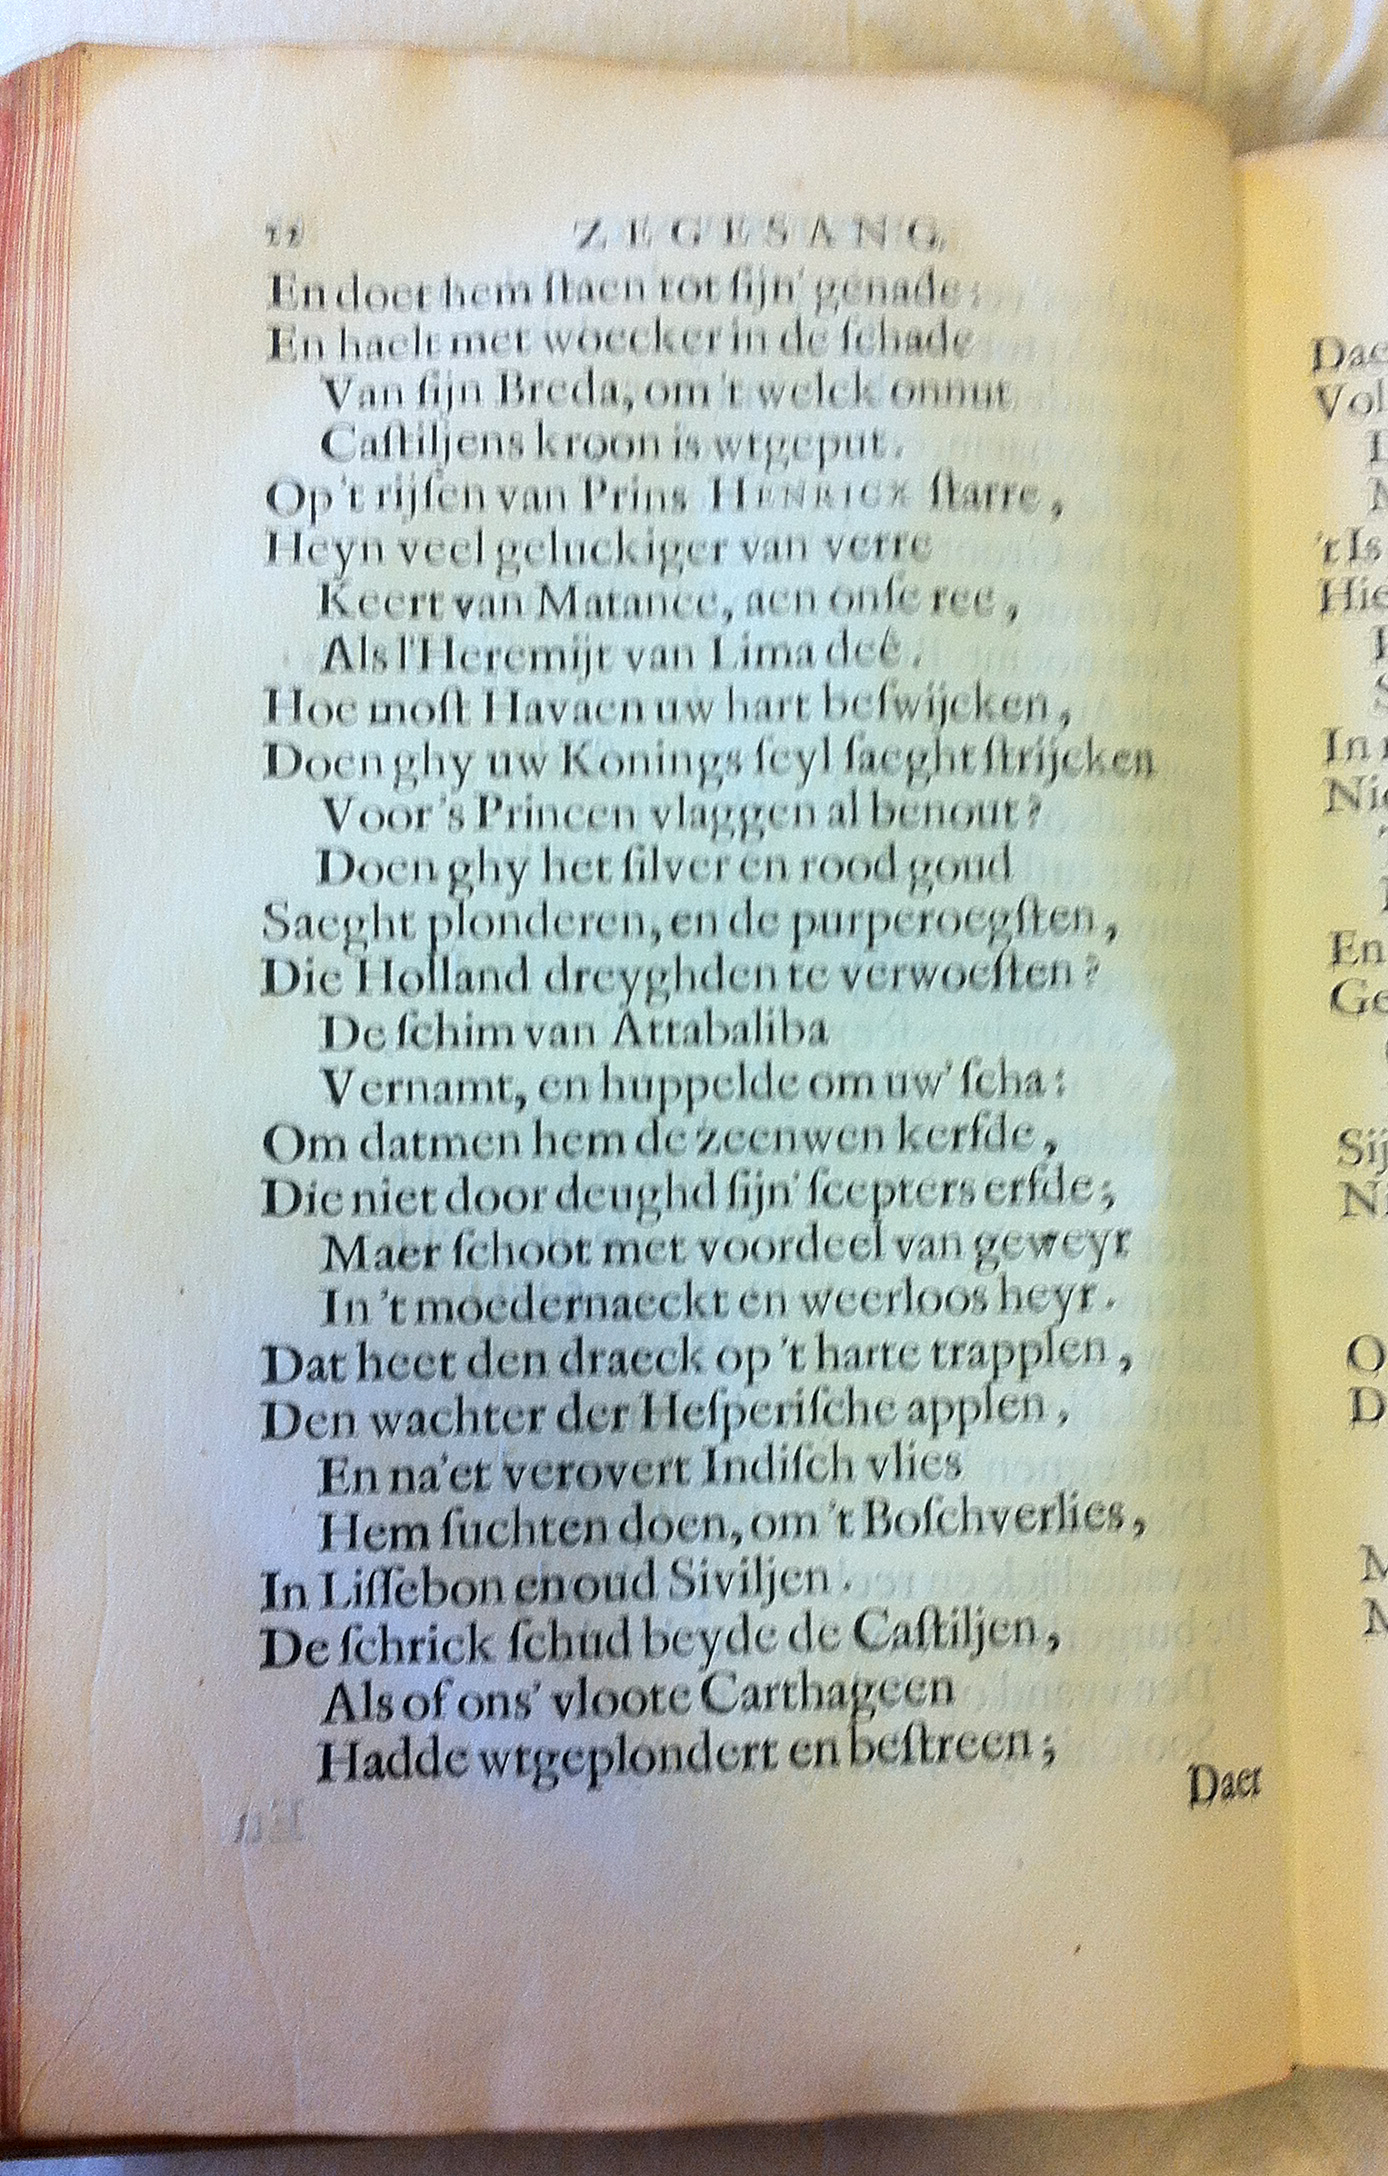 ZEGESANG,
En doet hem ſtaen tot ſijn' genade:
En haelt met woecker in de ſchade
Van ſijn Breda, om 't welck onnut
Caſtiljens kroon is wtgeput.
Op 't rijſen van Prins HENRICX ſtarre,
Heyn veel geluckiger van verre
Keert van Matance, aen onſe ree,
Als l'Heremijt van Lima deê.
Hoe moſt Havaen uw hart beſwijcken,
Doen ghy uw Konings ſeyl ſaeght ſtrijcken
Voor 's Princen vlaggen al benout?
Doen ghy het ſilver en rood goud
Saeght plonderen, en de purperoegſten,
Die Holland dreyghden te verwoeſten?
De ſchim van Attabaliba
Vernamt, en huppelde om uw' ſcha:
Om datmen hem de zeenwen kerfde,
Die niet door deughd ſijn' ſcepters erfde;
Maer ſchoot met voordeel van geweyr
In 't moedernaeckt en weerloos heyr.
Dat heet den draeck op 't harte trapplen,
Den wachter der Heſperiſche applen,
En na'et verovert Indiſch vlies
Hem ſuchten doen, om 't Boſchverlies,
In Liſſebon en oud Siviljen.
De ſchrick ſchud beyde de Caſtiljen,
Als of ons' vloote Carthageen
Hadde wtgeplondert en beſtreen;
Daer
Dae
Vol
't Is
Hie
In
Nie
En
Ge
Sij
O
D